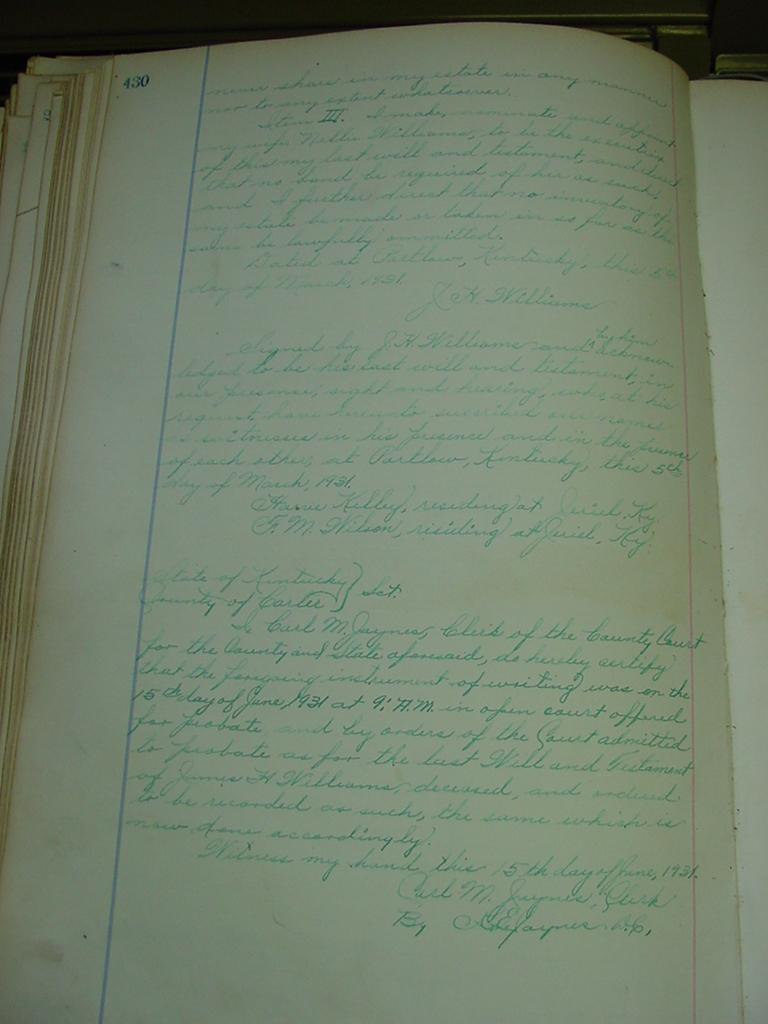 430
never share in my estate in any manner
nor to any extent whatsoever.
Item III. I make, nominate and appoint
my wife Nellie Williams, to be the executrix
of this my last will and testament, and direct
that no bond be required of her as such,
and I further direct that no inventory of
my estate be made or taken in so far as the
same be lawfully ommitted.
Dated at Partlow, Kentucky, this 5th
day of March, 1931.
J. H. Williams
by him
Signed by J. H. Williams and acknow-
ledged to be his last will and testament, in
our presence, sight and hearing, who, at his
request, have hereunto suscribed our names
as witnesses in his presence and in the presence
of each other, at Partlow, Kentucky, this 5th
day of March, 1931.
Kelley, residing at Jeriel, Ky.
F. M. Wilson, residing at Jeriel, Ky.
State of Kentucky
County of Carter } Sct.
I Carl M. Jaynes, Clerk of the County Court
for the County and State aforesaid, do hereby certify
that the foregoing instrument of writing was on the
15th day of June 1931 at 9: A.M. in open court offered
for probate, and by orders of the Court admitted
to probate as for the last Will and Testament
of James H Williams, deceased, and ordered
to be recorded as such, the same which is
now done accordingly.
Witness my hand this 15th day of June, 1931.
Carl M. Jaynes, Clerk
By Jaynes D.C.